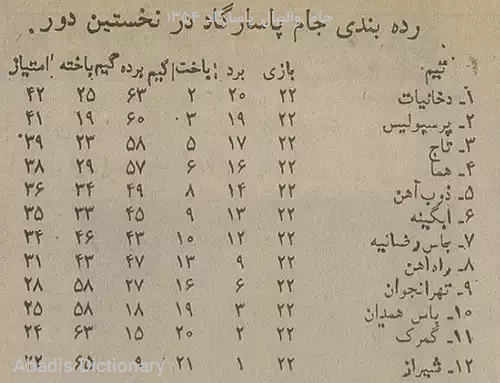 جام والیبال پاسارگاد ۱۳۵۴
رده بندی جام پاسارگاد در نخستین دور.
تیم: بازی برد باخت گیم برده گیم باخته امتیاز
۱ـ دخانیات ۲۲ ۲۰ ۲ ۶۳ ۲۵ ۴۲
۲ـ پرسپولیس ۲۲ ۱۹ ۳ ۶۰ ۱۹ ۴۱
۳ـ تاج ۲۲ ۱۷ ۵ ۵۸ ۲۳ ۳۹
۴ـ هما ۲۲ ۱۶ ۶ ۵۷ ۲۹ ۳۸
۵ـ ذوب آهن ۲۲ ۱۴ ۸ ۴۹ ۳۴ ۳۶
۶ـ آبگینه ۲۲ ۱۳ ۹ ۴۵ ۳۳ ۳۵
۷ـ پاس رضائیه ۲۲ ۱۲ ۱۰ ۴۳ ۴۶ ۳۴
۸ـ راه آهن ۲۲ ۹ ۱۳ ۴۳ ۴۷ ۳۱
۹ـ تهرانجوان ۲۲ ۶ ۱۶ ۲۷ ۵۸ ۲۸
۱۰ـ پاس همدان ۲۲ ۳ ۱۹ ۱۸ ۵۸ ۲۵
۱۱ـ گمرک ۲۲ ۲ ۲۰ ۱۵ ۶۳ ۲۴
۱۲ـ شیراز ۲۲ ۱ ۲۱ ۹ ۶۵
Abadis Dictionary